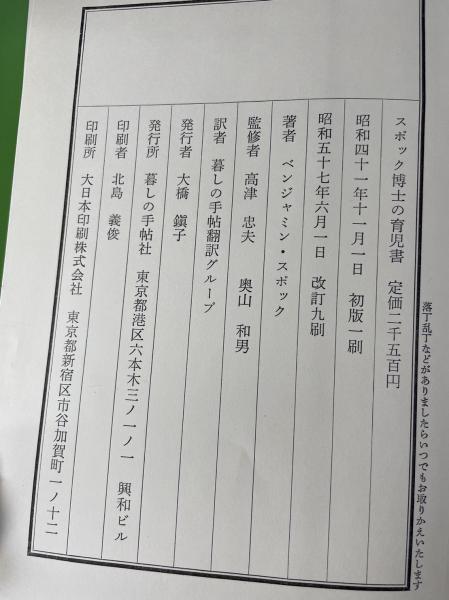 落丁乱丁などがありましたらいつでもお取りかえいたします
スポック博士の育児書　定価二千五百円
昭和四十一年十一月一日　初版一刷
昭和五十七年六月一日　改訂九刷
著者　ベンジャミン・スポック
監修者　高津　忠夫　奥山　和男
訳者　暮しの手帖翻訳グループ
発行者　大橋　鎭子
発行所　暮しの手帖社　東京都港区六本木三ノ一ノ一　興和ビル
印刷者　北島　義俊
印刷所　大日本印刷株式会社　東京都新宿区市谷加賀町一ノ十二